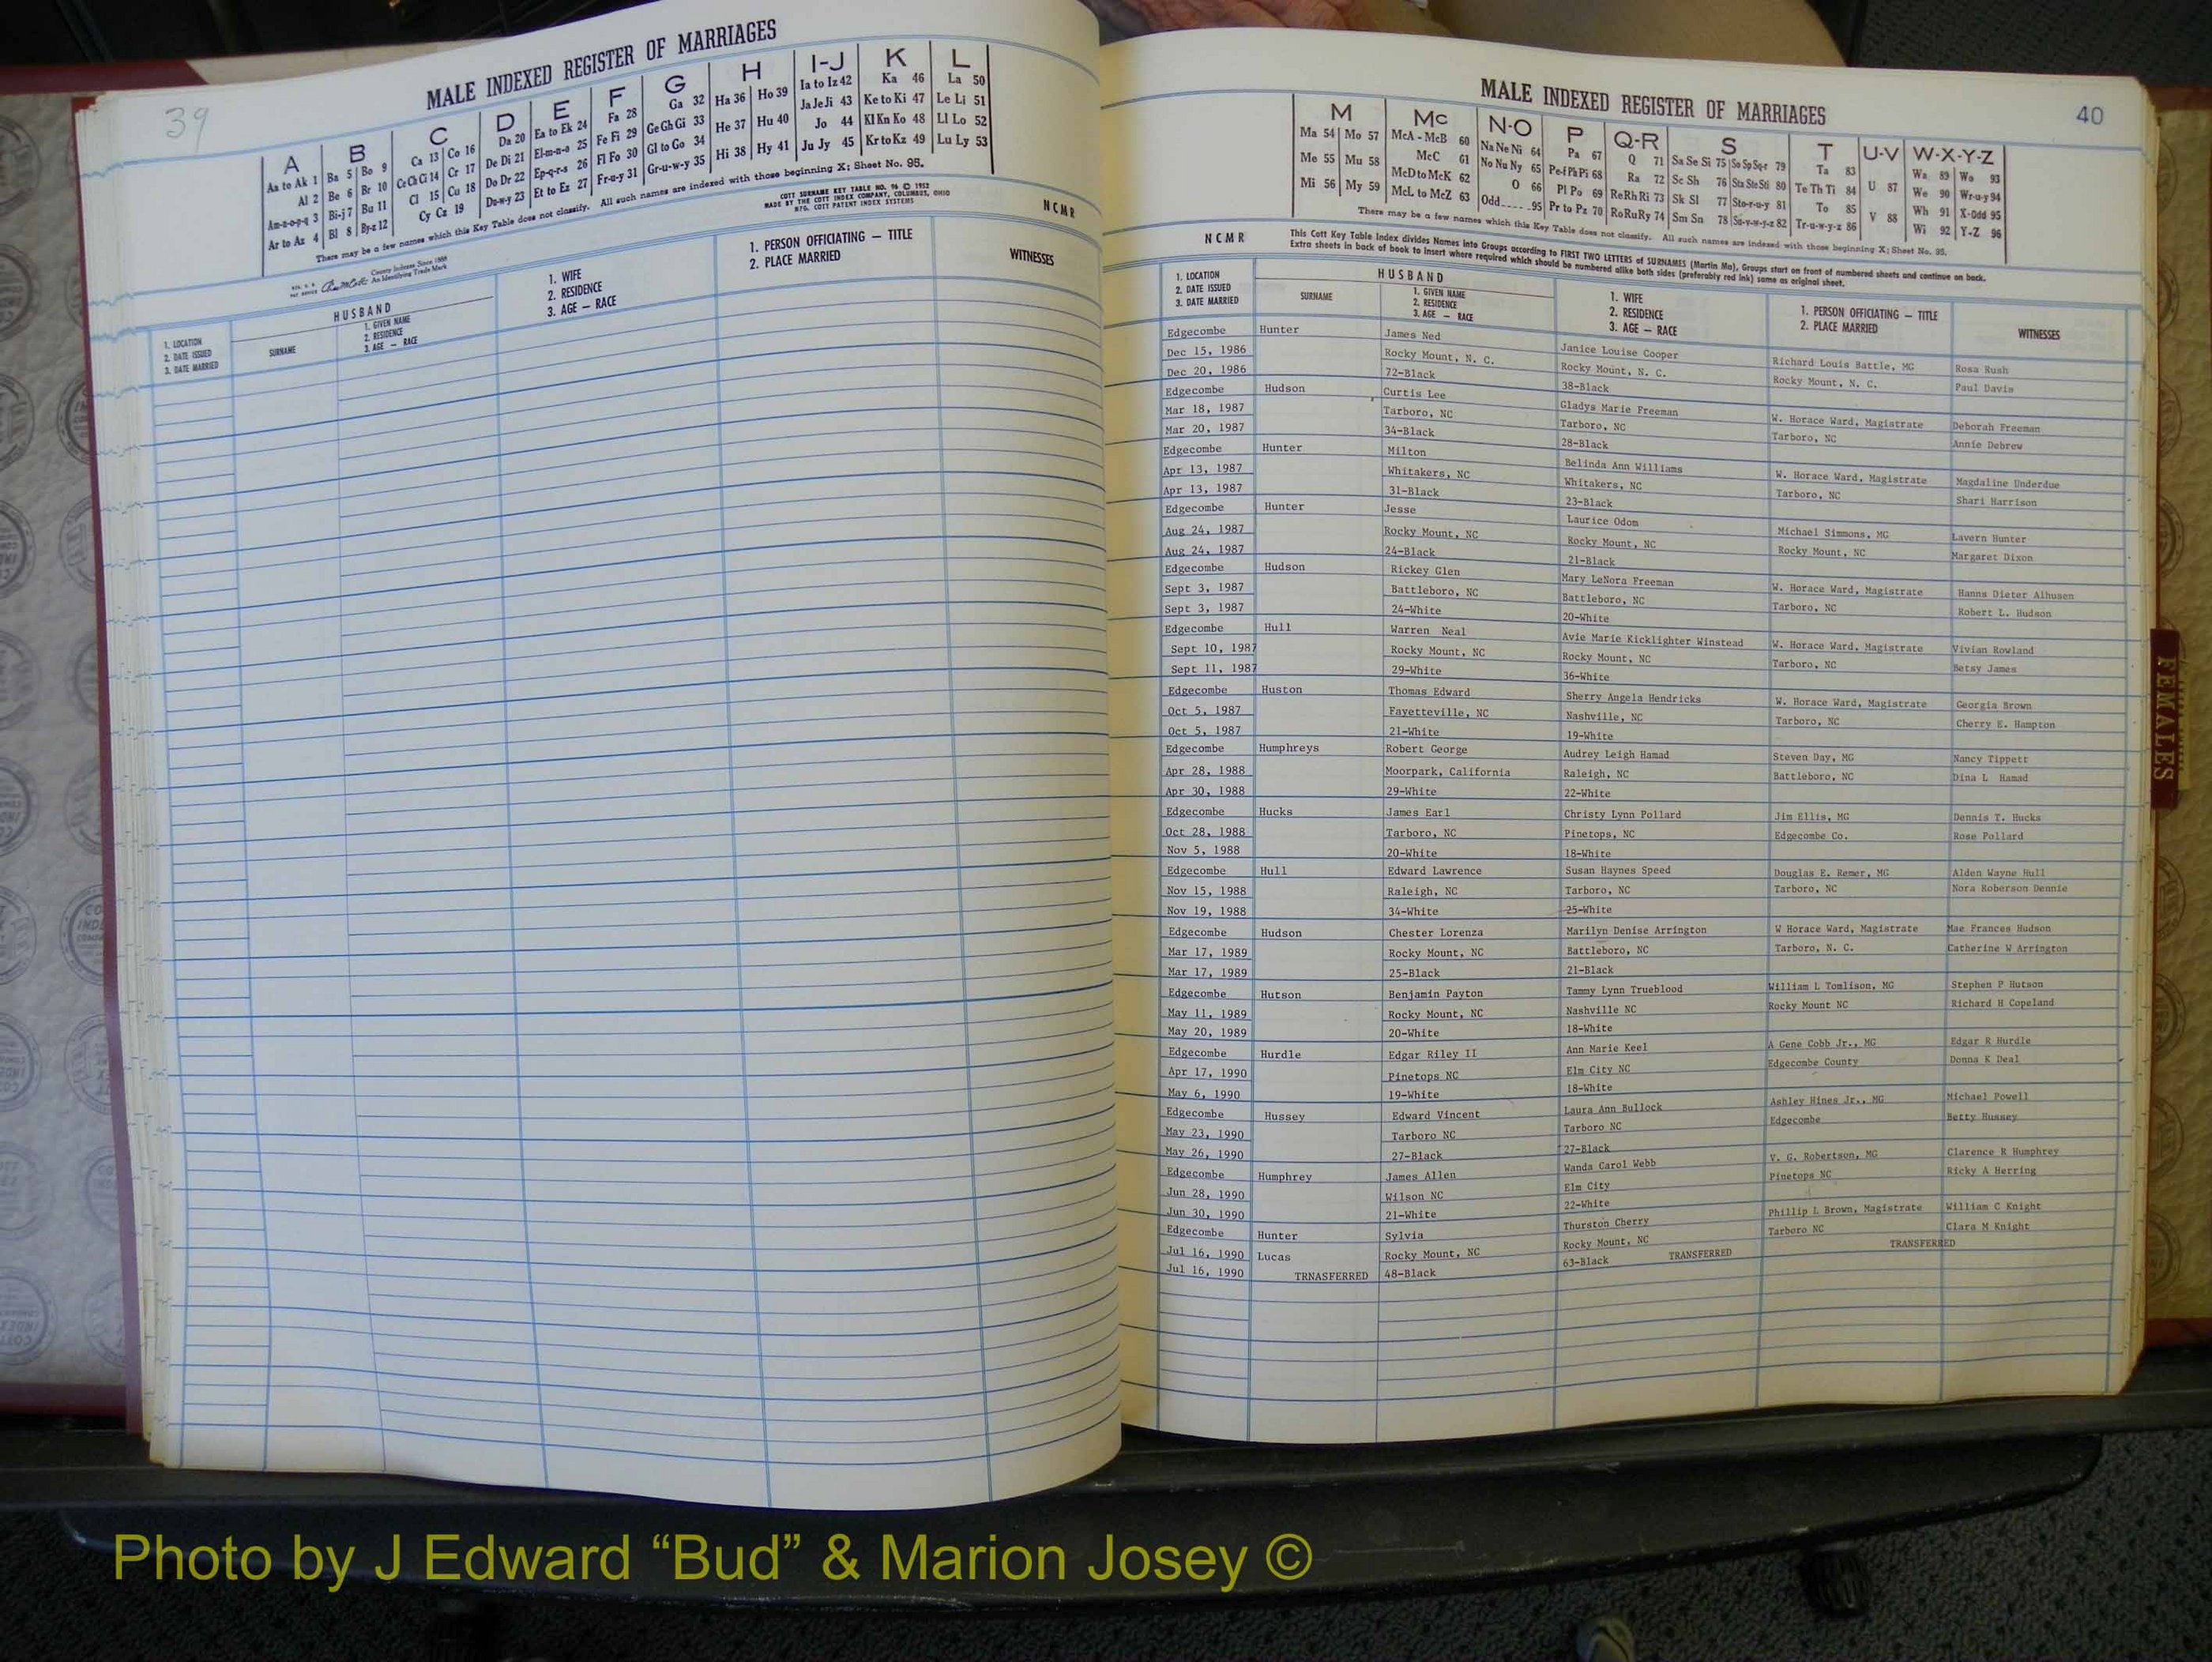 39
MALE INDEXED REGISTER OF MARRIAGES
A B C D E F G H I-J K L
Aa to Ak 1 Ba 5 Bo 9 Ca 13 Co 16 Da 20 Ea to Ek 24 Fa 28 Ga 32 Ha 36 Ho 39 Ia to Iz 42 Ka 46 La 50
Al 2 Be 6 Br 10 Ce Ch Ci 14 Cr 17 De Di 21 El-m-n-o 25 Fe Fi 29 Ge Gh Gi 33 He 37 Hu 40 Ja Je Ji 43 Ke to Ki 47 Le Li 51
Am-n-o-p-q 3 Bi-j 7 Bu 11 Cl 15 Cu 18 Do Dr 22 Ep-q-r-s 26 Fl Fo 30 Gl to Go 34 Hi 38 Hy 41 Jo 44 Kl Kn Ko 48 Ll Lo 52
Ar to Az 4 Bl 8 By-z 12 Cy Cz 19 Du-w-y 23 Et to Ez 27 Fr-u-y 31 Gr-u-w-y 35 Ju Jy 45 Kr to Kz 49 Lu Ly 53
There may be a few names which this Key Table does not classify. All such names are indexed with those beginning X; Sheet No. 95.
COTT SURNAME KEY TABLE NO. 96 © 1952
MADE BY THE COTT INDEX COMPANY, COLUMBUS, OHIO
MFG. COTT PATENT INDEX SYSTEMS
NCMR
County Indexes Since 1888
An Identifying Trade Mark
1. LOCATION
2. DATE ISSUED
3. DATE MARRIED
HUSBAND
SURNAME
1. GIVEN NAME
2. RESIDENCE
3. AGE — RACE
1. WIFE
2. RESIDENCE
3. AGE — RACE
1. PERSON OFFICIATING — TITLE
2. PLACE MARRIED
WITNESSES
40
MALE INDEXED REGISTER OF MARRIAGES
M Mc N-O P Q-R S T U-V W-X-Y-Z
Ma 54 Mo 57 McA - McB 60 Na Ne Ni 64 Pa 67 Q 71 Sa Se Si 75 So Sp Sq-r 79 Ta 83 U 87 Wa 89 Wo 93
Me 55 Mu 58 McC 61 No Nu Ny 65 Pe-f Ph Pi 68 Ra 72 Sc Sh 76 Sta Ste Sti 80 Te Th Ti 84 V 88 We 90 Wr-u-y 94
Mi 56 My 59 McD to McK 62 O 66 Pl Po 69 Re Rh Ri 73 Sk Sl 77 Sto-r-u-y 81 To 85 Wh 91 X-Odd 95
McL to McZ 63 Odd 95 Pr to Pz 70 Ro Ru Ry 74 Sm Sn 78 Su-v-w-y-z 82 Tr-u-w-y-z 86 Wi 92 Y-Z 96
There may be a few names which this Key Table does not classify. All such names are indexed with those beginning X; Sheet No. 95.
NCMR
This Cott Key Table Index divides Names into Groups according to FIRST TWO LETTERS of SURNAMES (Martin Ma), Groups start on front of numbered sheets and continue on back.
Extra sheets in back of book to insert where required which should be numbered alike both sides (preferably red ink) same as original sheet.
1. LOCATION
2. DATE ISSUED
3. DATE MARRIED
HUSBAND
SURNAME
1. GIVEN NAME
2. RESIDENCE
3. AGE — RACE
1. WIFE
2. RESIDENCE
3. AGE — RACE
1. PERSON OFFICIATING — TITLE
2. PLACE MARRIED
WITNESSES
Edgecombe Hunter James Ned Janice Louise Cooper Richard Louis Battle, MG Rosa Rush
Dec 15, 1986 Rocky Mount, N. C. Rocky Mount, N. C. Rocky Mount, N. C. Paul Davis
Dec 20, 1986 72-Black 38-Black
Edgecombe Hudson Curtis Lee Gladys Marie Freeman W. Horace Ward, Magistrate Deborah Freeman
Mar 18, 1987 Tarboro, NC Tarboro, NC Tarboro, NC Annie Debrew
Mar 20, 1987 34-Black 28-Black
Edgecombe Hunter Milton Belinda Ann Williams W. Horace Ward, Magistrate Magdaline Underdue
Apr 13, 1987 Whitakers, NC Whitakers, NC Tarboro, NC Shari Harrison
Apr 13, 1987 31-Black 23-Black
Edgecombe Hunter Jesse Laurice Odom Michael Simmons, MG Lavern Hunter
Aug 24, 1987 Rocky Mount, NC Rocky Mount, NC Rocky Mount, NC Margaret Dixon
Aug 24, 1987 24-Black 21-Black
Edgecombe Hudson Rickey Glen Mary LeNora Freeman W. Horace Ward, Magistrate Hanns Dieter Alhusen
Sept 3, 1987 Battleboro, NC Battleboro, NC Tarboro, NC Robert L. Hudson
Sept 3, 1987 24-White 20-White
Edgecombe Hull Warren Neal Avie Marie Kicklighter Winstead W. Horace Ward, Magistrate Vivian Rowland
Sept 10, 1987 Rocky Mount, NC Rocky Mount, NC Tarboro, NC Betsy James
Sept 11, 1987 29-White 36-White
Edgecombe Huston Thomas Edward Sherry Angela Hendricks W. Horace Ward, Magistrate Georgia Brown
Oct 5, 1987 Fayetteville, NC Nashville, NC Tarboro, NC Cherry E. Hampton
Oct 5, 1987 21-White 19-White
Edgecombe Humphreys Robert George Audrey Leigh Hamad Steven Day, MG Nancy Tippett
Apr 28, 1988 Moorpark, California Raleigh, NC Battleboro, NC Dina L Hamad
Apr 30, 1988 29-White 22-White
Edgecombe Hucks James Earl Christy Lynn Pollard Jim Ellis, MG Dennis T. Hucks
Oct 28, 1988 Tarboro, NC Pinetops, NC Edgecombe Co. Rose Pollard
Nov 5, 1988 20-White 18-White
Edgecombe Hull Edward Lawrence Susan Haynes Speed Douglas E. Remer, MG Alden Wayne Hull
Nov 15, 1988 Raleigh, NC Tarboro, NC Tarboro, NC Nora Roberson Dennie
Nov 19, 1988 34-White 25-White
Edgecombe Hudson Chester Lorenza Marilyn Denise Arrington W Horace Ward, Magistrate Mae Frances Hudson
Mar 17, 1989 Rocky Mount, NC Battleboro, NC Tarboro, N. C. Catherine W Arrington
Mar 17, 1989 25-Black 21-Black
Edgecombe Hutson Benjamin Payton Tammy Lynn Trueblood William L Tomlison, MG Stephen P Hutson
May 11, 1989 Rocky Mount, NC Nashville NC Rocky Mount NC Richard H Copeland
May 20, 1989 20-White 18-White
Edgecombe Hurdle Edgar Riley II Ann Marie Keel A Gene Cobb Jr., MG Edgar R Hurdle
Apr 17, 1990 Pinetops NC Elm City NC Edgecombe County Donna K Deal
May 6, 1990 19-White 18-White
Edgecombe Hussey Edward Vincent Laura Ann Bullock Ashley Hines Jr., MG Michael Powell
May 23, 1990 Tarboro NC Tarboro NC Edgecombe Betty Hussey
May 26, 1990 27-Black 27-Black
Edgecombe Humphrey James Allen Wanda Carol Webb V. G. Robertson, MG Clarence R Humphrey
Jun 28, 1990 Wilson NC Elm City Pinetops NC Ricky A Herring
Jun 30, 1990 21-White 22-White
Edgecombe Hunter Sylvia Thurston Cherry Phillip L Brown, Magistrate William C Knight
Jul 16, 1990 Lucas Rocky Mount, NC Rocky Mount, NC Tarboro NC Clara M Knight
Jul 16, 1990 TRNASFERRED 48-Black 63-Black TRANSFERRED TRANSFERRED
FEMALES
Photo by J Edward “Bud” & Marion Josey ©